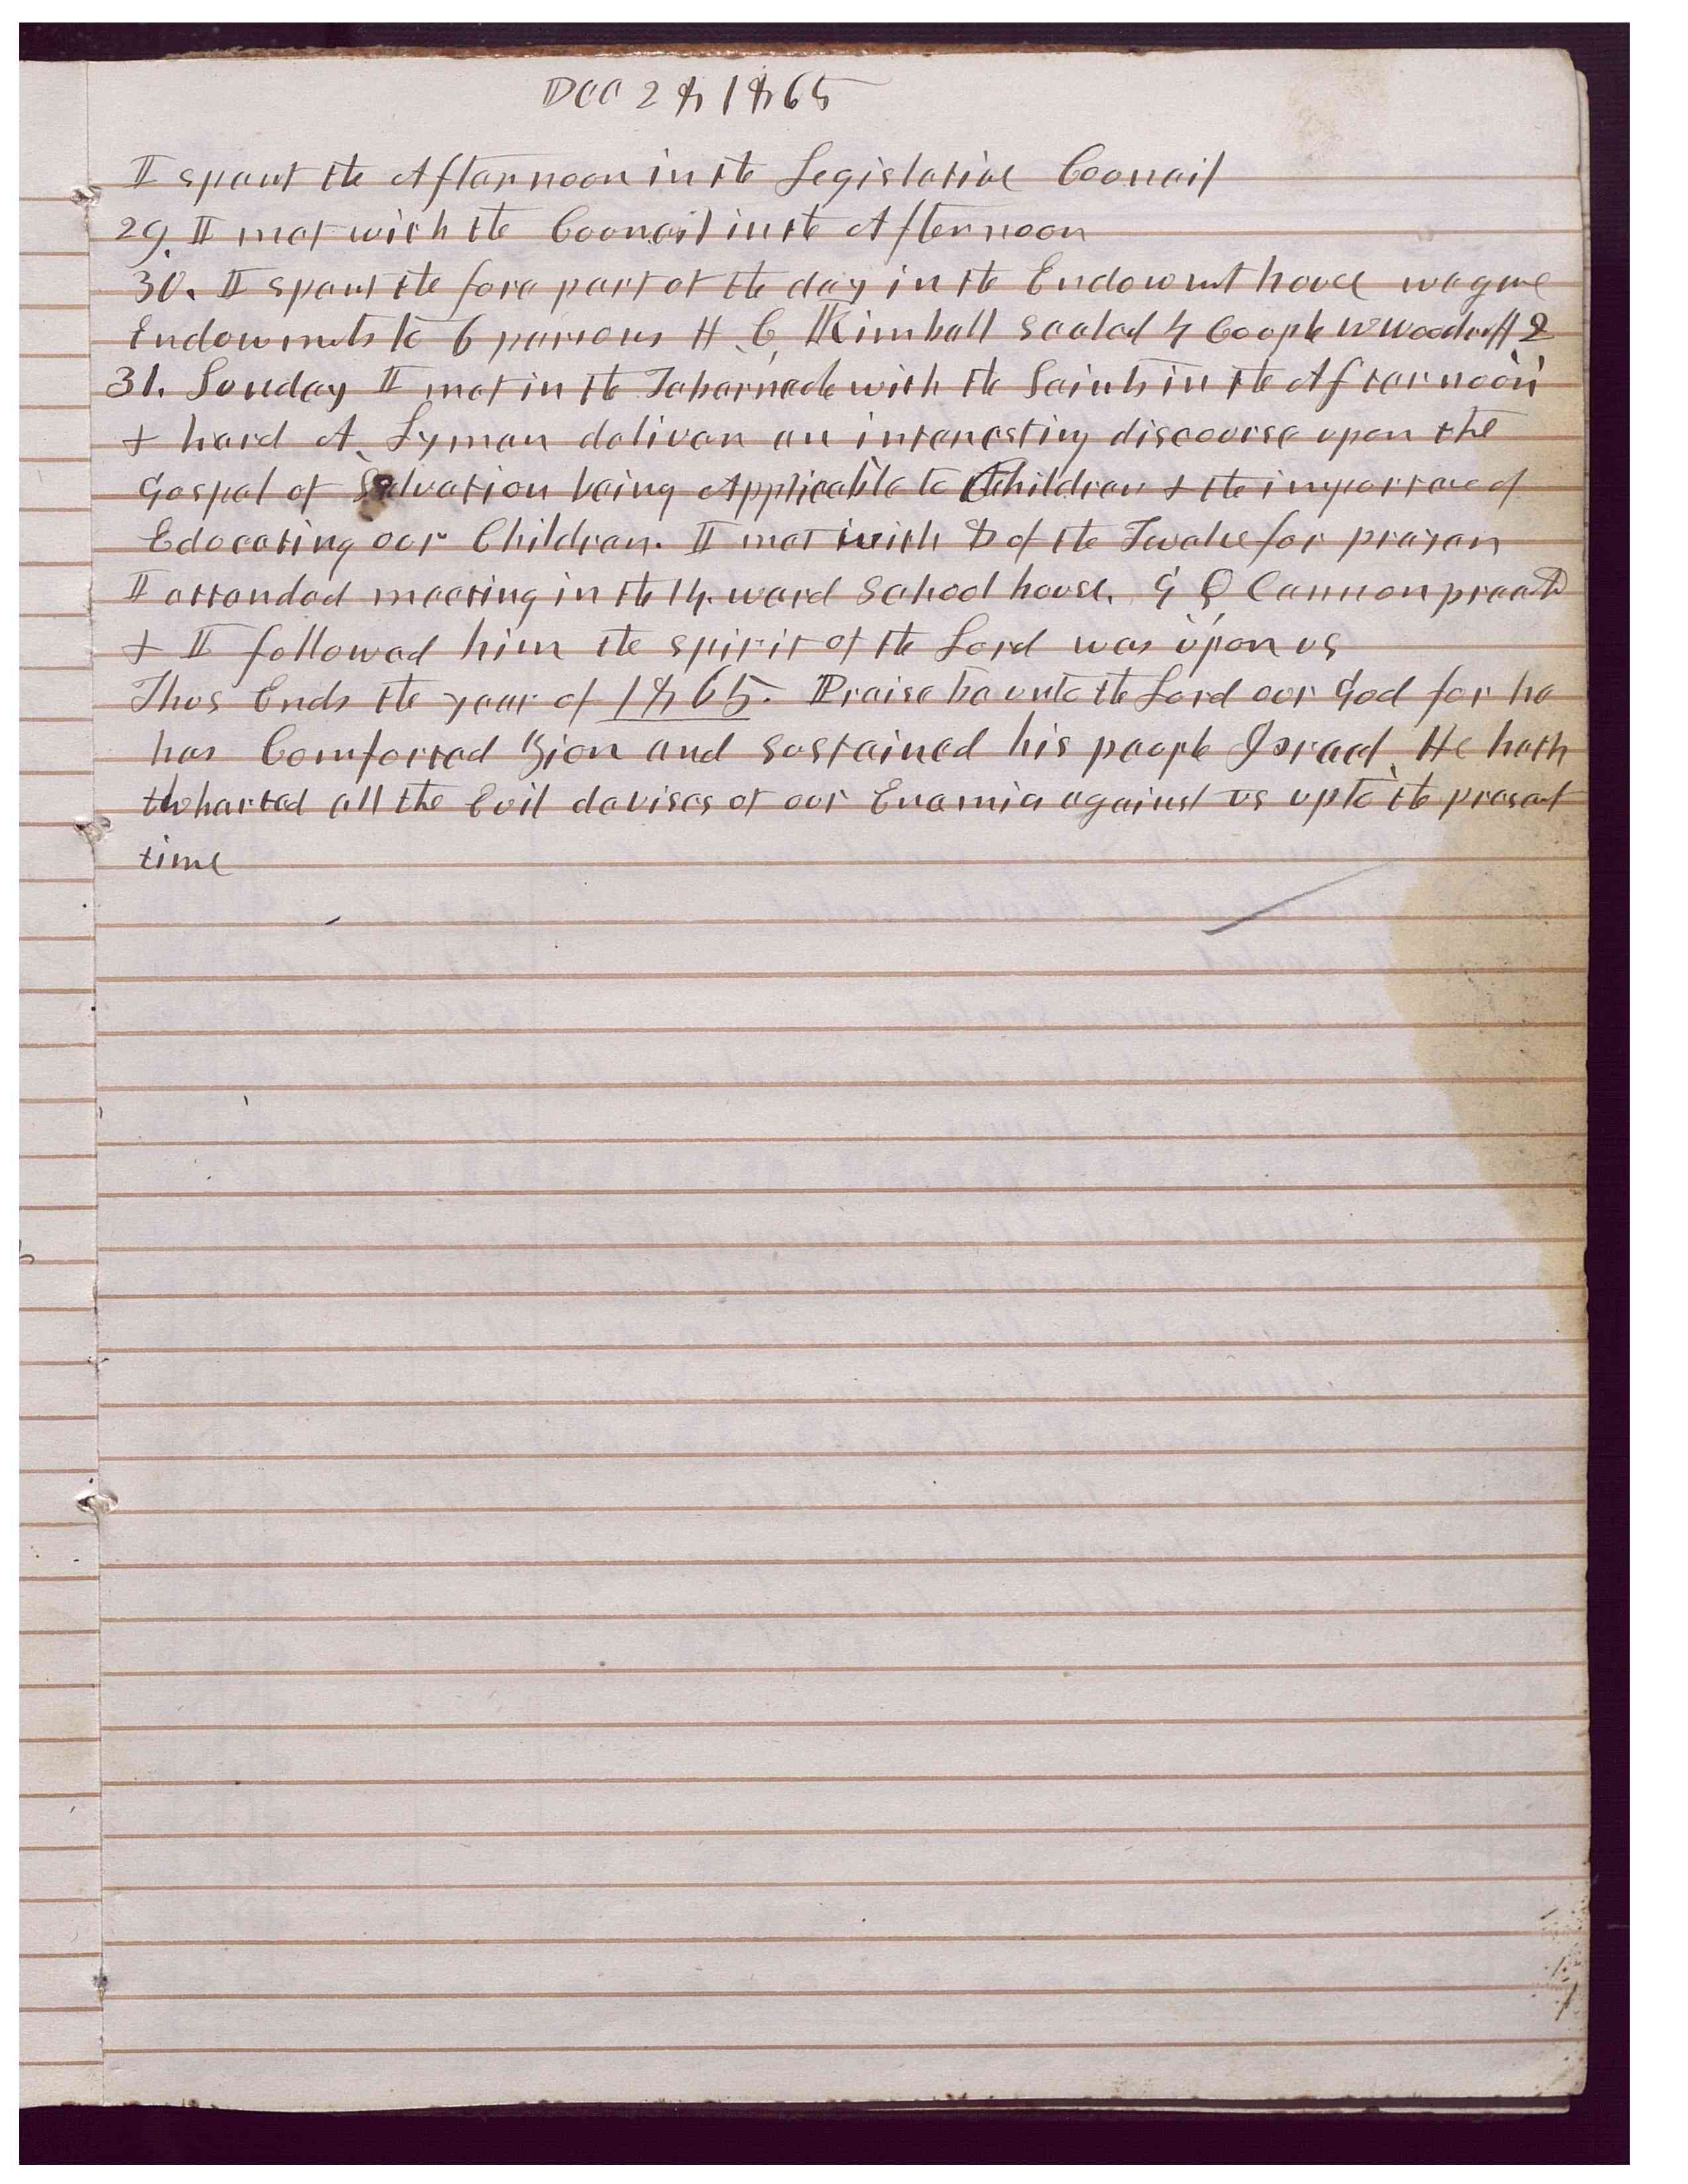 Dec 28 1865
I spent the Afternoon in the Legislative Council
29. I met with the Council in the Afternoon
30. I spent the fore part of the day in the Endowmt house we gave
Endowmets to 6 persons H. C. Kimball sealed 4 Couple W Woodruff 2
31. Sunday I met in the Tabernacle with the Saints in the Afternoon
+ heard A. Lyman deliver an interesting discourse upon the
Gospel of Salvation being Applicable to Children + the importance of
Educating our Children. I met with 8 of the Twelve for prayer
I attended meeting in the 14. ward School house. G Q Cannon preachd
+ I followed him the spirit of the Lord was upon us
Thus Ends the year of 1865. Praise be unto the Lord our God for he
has Comforted Zion and sustained his people Israel. He hath
thwharted all the Evil devises of our Enemies against us up to the present
time